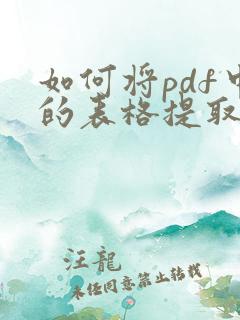 如何将pdf中
的表格提取
汪龍
未任同意禁止转载